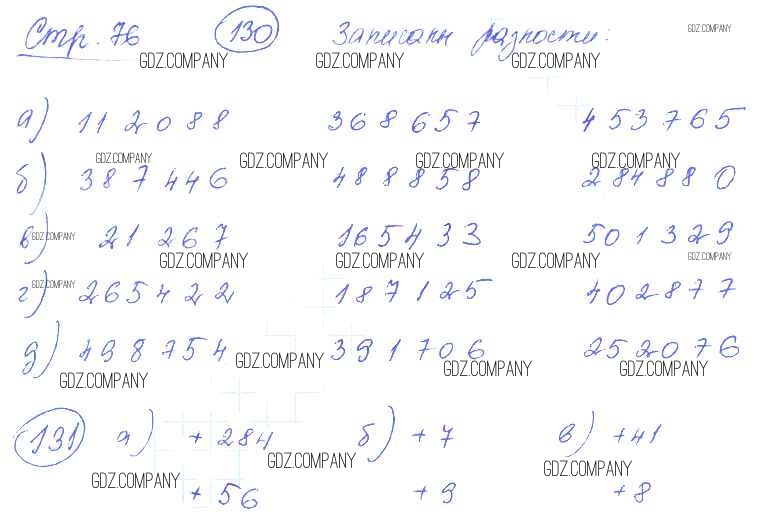 Стр. 76 130 Записаны разности: GDZ.COMPANY
GDZ.COMPANY GDZ.COMPANY GDZ.COMPANY
а) 112088 368657 453765
GDZ.COMPANY GDZ.COMPANY GDZ.COMPANY GDZ.COMPANY
б) 387446 488858 284880
в) GDZ.COMPANY 21267 165433 501329
GDZ.COMPANY GDZ.COMPANY GDZ.COMPANY GDZ.COMPANY
г) GDZ.COMPANY 265422 187125 402877
д) 498754 GDZ.COMPANY 391706 252076
GDZ.COMPANY GDZ.COMPANY GDZ.COMPANY
131 а) + 284 б) + 7 в) + 41
GDZ.COMPANY GDZ.COMPANY
GDZ.COMPANY + 56 + 9 + 8